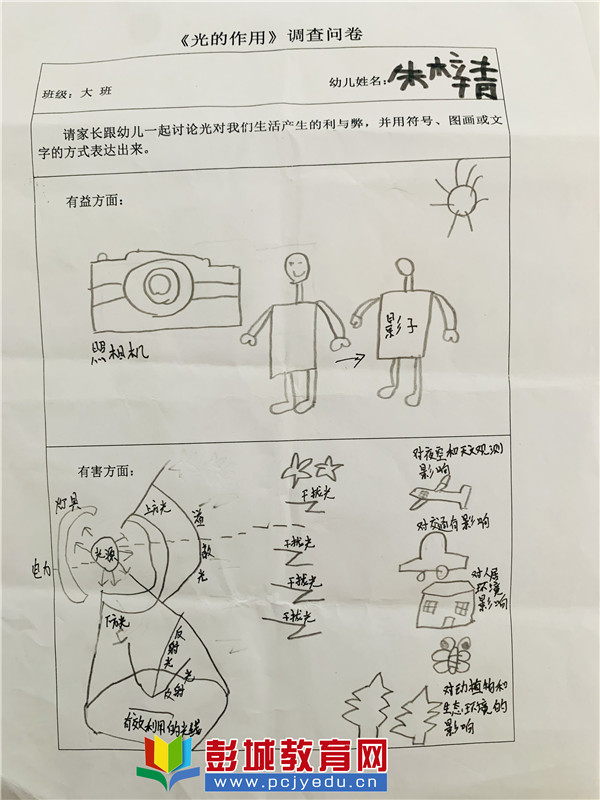 《光的作用》调查问卷
班级：大 班
幼儿姓名：朱梓菁
请家长跟幼儿一起讨论光对我们生活产生的利与弊，并用符号、图画或文
字的方式表达出来。
有益方面：
照相机
影子
有害方面：
灯具
上方光
溢散光
光源
电力
下方光
反射光
反射光
有效利用的光线
干扰光
干扰光
干扰光
干扰光
对夜空和天文观测
影响
对交通有影响
对人居
环境
影响
对动植物和
生态环境的
影响
彭城教育网
www.pcjyedu.cn